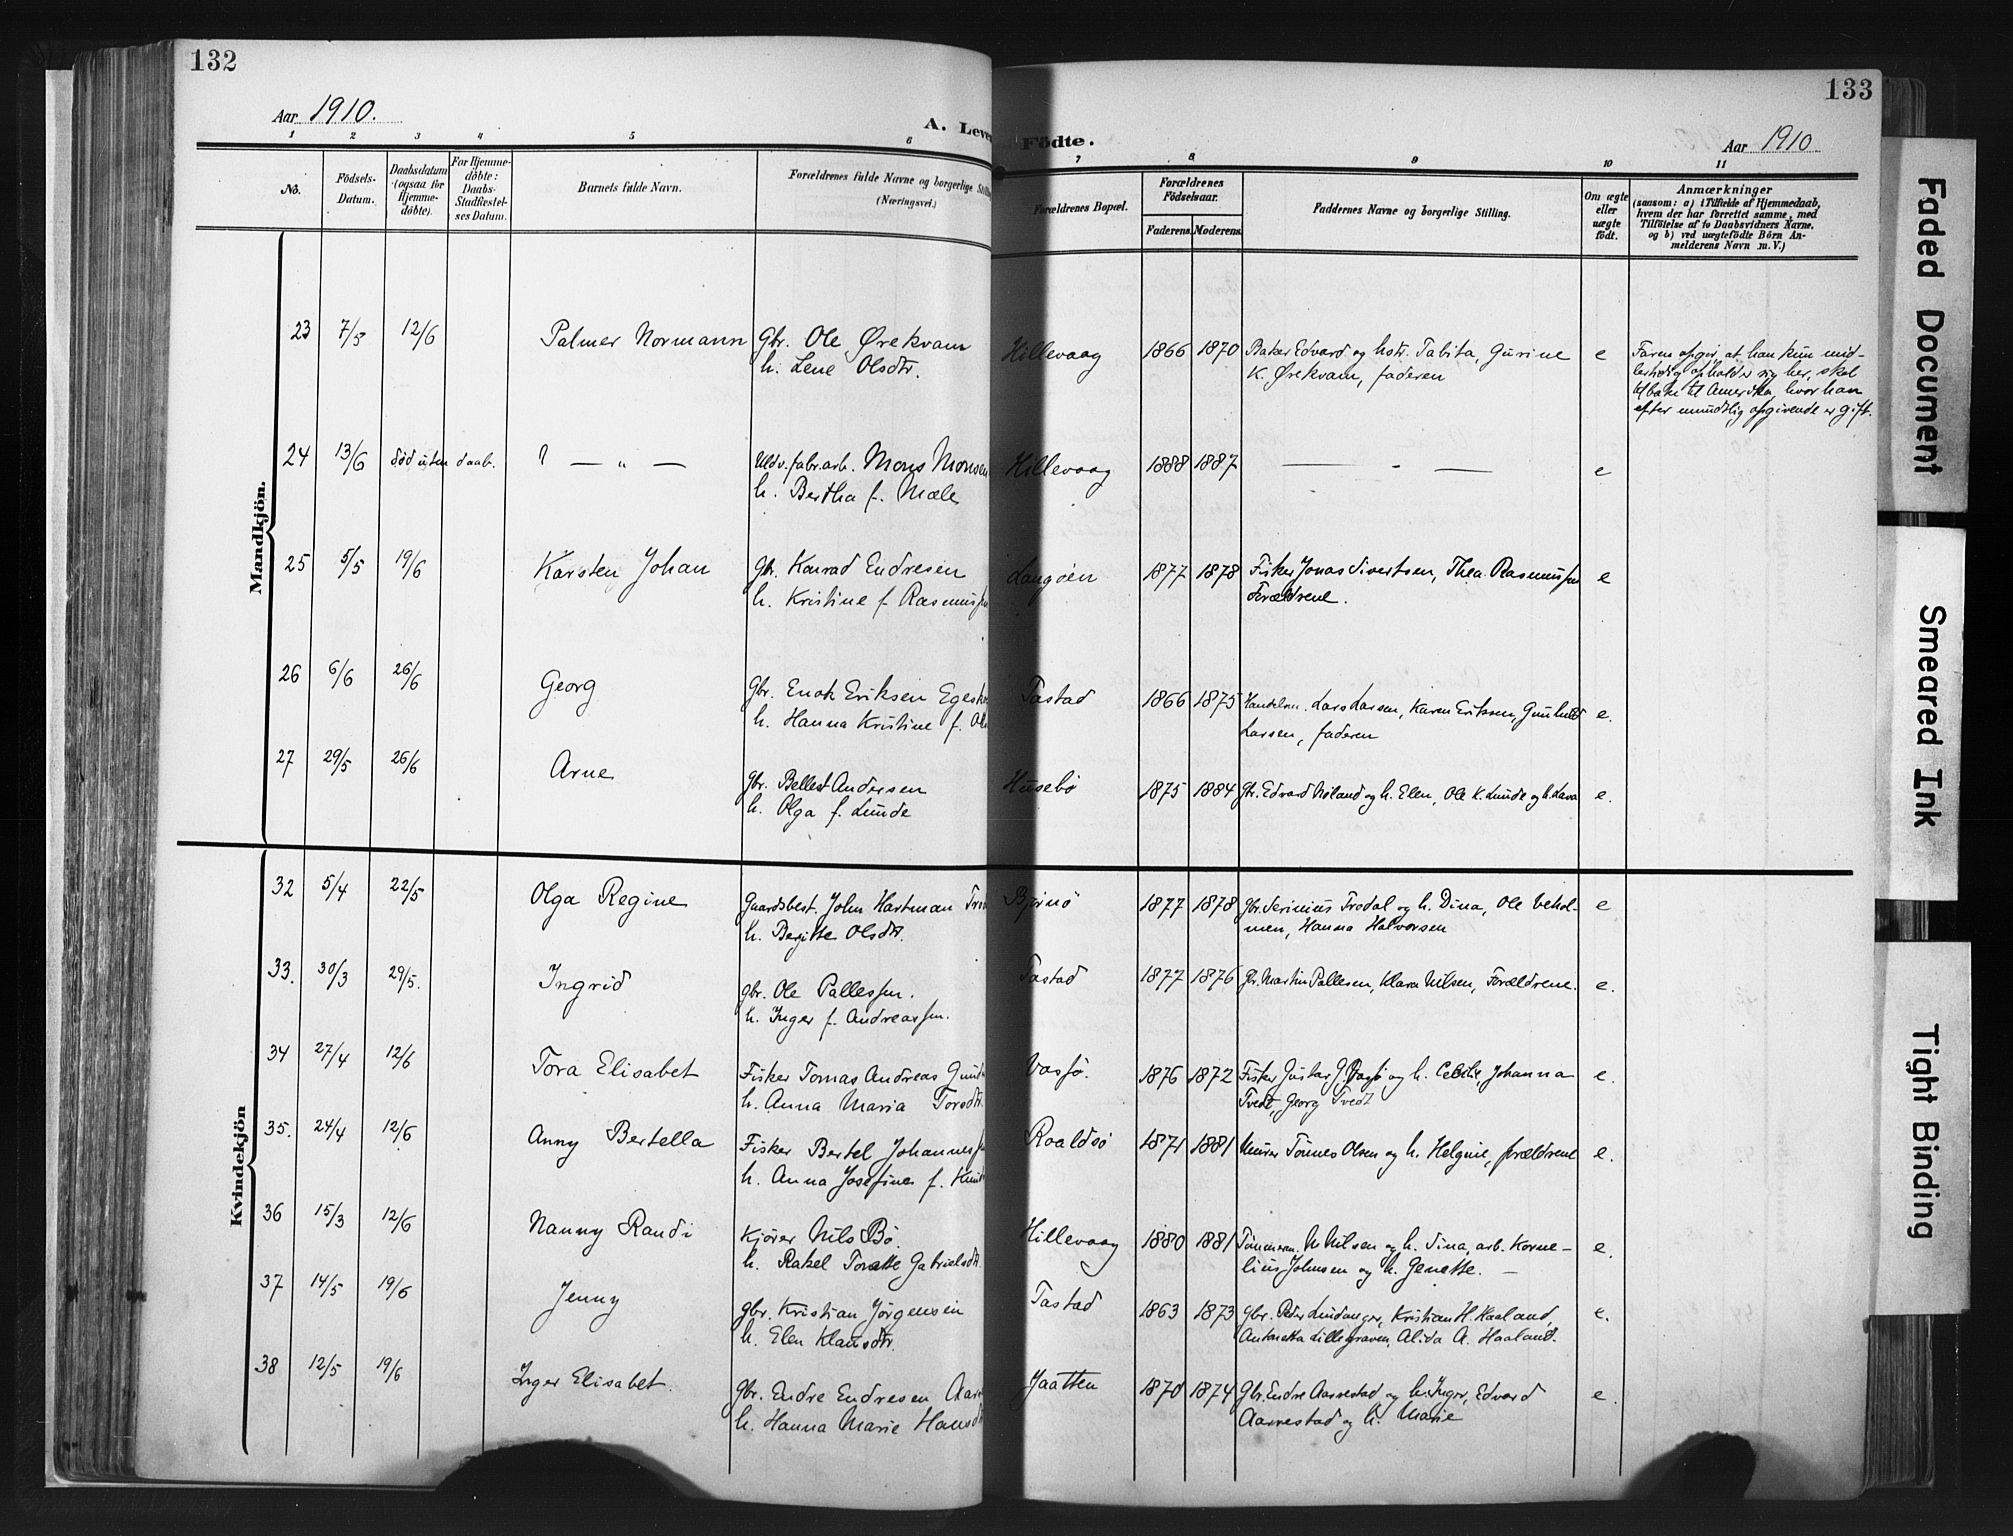 132
133
Aar 1910.
A. Leve
Födte.
Aar 1910
1 2 3 4 5 6 7 8 9 10 11
No.
Födsels-Datum.
Daabsdatum (ogsaa for Hjemme-döbte).
For Hjemme-döbte: Daabs-Stadfæstel-ses Datum.
Barnets fulde Navn.
Forældrenes fulde Navne og borgerlige Still
(Næringsvei.)
Forældrenes Bopæl.
Forældrenes Födselsaar.
Faderens. Moderens.
Faddernes Navne og borgerlige Stilling.
Om ægte eller uægte födt.
Anmærkninger
(saasom: a) i Tilfælde af Hjemmedaab,
hvem der har forrettet samme, med
Tilföielse af to Daabsvidners Navne.
og b) ved uægtefödte Börn An-
melderens Navn m. V.)
Mandkjön.
23 7/5 12/6 Palmer Normann Gbr. Ole Ørekvam Hillevaag 1866 1870 Baker Edvard og hstr. Tabita, Gurine e Faren opgir, at han kun mid-
h. Lene Olsdtr. K. Ørekvam, faderen lertidig opholder sig her, skal
tilbake til Amerika, hvor han
efter mundtlig opgivende er gift.
24 13/6 død uten daab. ? — „ — Uldv.fabr.arb. Mons Monsen Hillevaag 1888 1887 — - — e
h. Bertha f. Mæle
25 5/5 19/6 Karsten Johan Gbr. Konrad Endresen Langøen 1877 1878 Fisker Jonas Sivertsen, Thea Rasmussen e
h. Kristine f. Rasmussen Forældrene.
26 6/6 26/6 Georg Gbr. Enok Eriksen Egesk Tastad 1866 1875 Handelsm. Lars Larsen, Karen Eriksen, Gunhild e.
h. Hanna Kristine f. Ol Larsen, faderen
27 29/5 26/6 Arne Gbr. Bellest Andersen Husebø 1875 1884 Gbr. Edvard Røland og h. Elen, Ole K. Lunde og h. Lava e.
h. Olga f. Lunde
Kvindekjön
32 5/4 22/5 Olga Regine Gaardsbest. John Hartman Tro Bjørnø 1877 1878 Gbr. Serinius Trodal og h. Dina, Ole Vehol- e
h. Begitte Olsdtr. men, Hanna Halvorsen
33. 30/3 29/5. Ingrid Gbr. Ole Pallessen. Tastad 1877 1876 Gbr. Martin Pallesen, Klara Nilsen, Forældrene. e.
h. Inger f. Andreassen.
34 27/4 12/6 Tora Elisabet Fisker Tomas Andreas Gunt Vasø. 1876 1872 Fisker Gustav G. Vasø og h. Cecilie, Johanna e.
h. Anna Maria Torsdtr. Tvedt, Georg Tvedt
35. 24/4 12/6 Anny Bertella Fisker Bertel Johannes Roaldsø 1871 1881 Murer Tønnes Olsen og h. Helgine, forældrene e.
h. Anna Josefine f. Knut
36 15/3 12/6 Nanny Randi Kjører Nils Bø. Hillevaag 1880 1881 Tømmerm. N. Nilsen og h. Sina, arb. Korne- e.
h. Rakel Tonette Gabrielsdtr. lius Johnsen og h. Genette. —
37 14/5 19/6 Jenny Gbr. Kristian Jörgensen Tastad 1863 1873 Gbr. Peder Lindanger, Kristian H. Haaland, e.
h. Elen Klausdtr. Antonetta Lillegraven, Alida A. Haaland.
38 12/5 19/6 Inger Elisabet. Gbr. Endre Endresen Aar Jaatten 1870 1874 Gbr. Endre Aarrestad og h. Inger, Edvard e.
h. Hanna Marie Hansdtr Aarrestad og h. Marie
Faded Document
Smeared Ink
Tight Binding